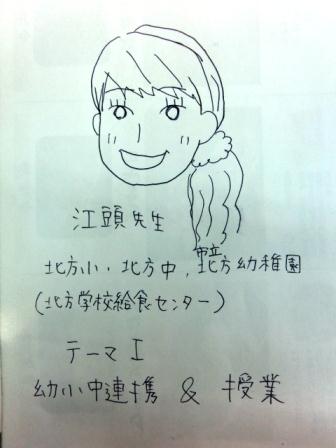 江頭先生
北方小・北方中,市立北方幼稚園
(北方学校給食センター)
テーマI
幼小中連携 & 授業